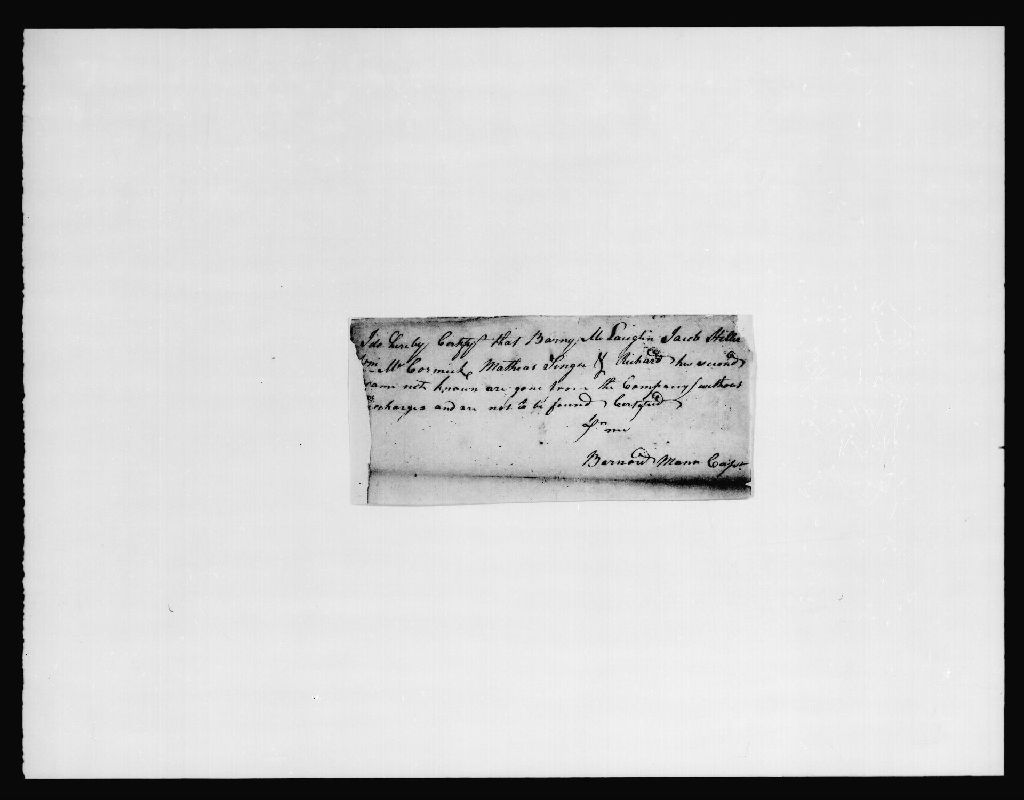 I do hereby Certify that Barny Mc Lauglin Jacob
Mc Cormick Mathias Singer & Richard his second
name not known are gone from the Company without
discharges and are not to be found Certifyed
Pr me
Bernard Mann Capt